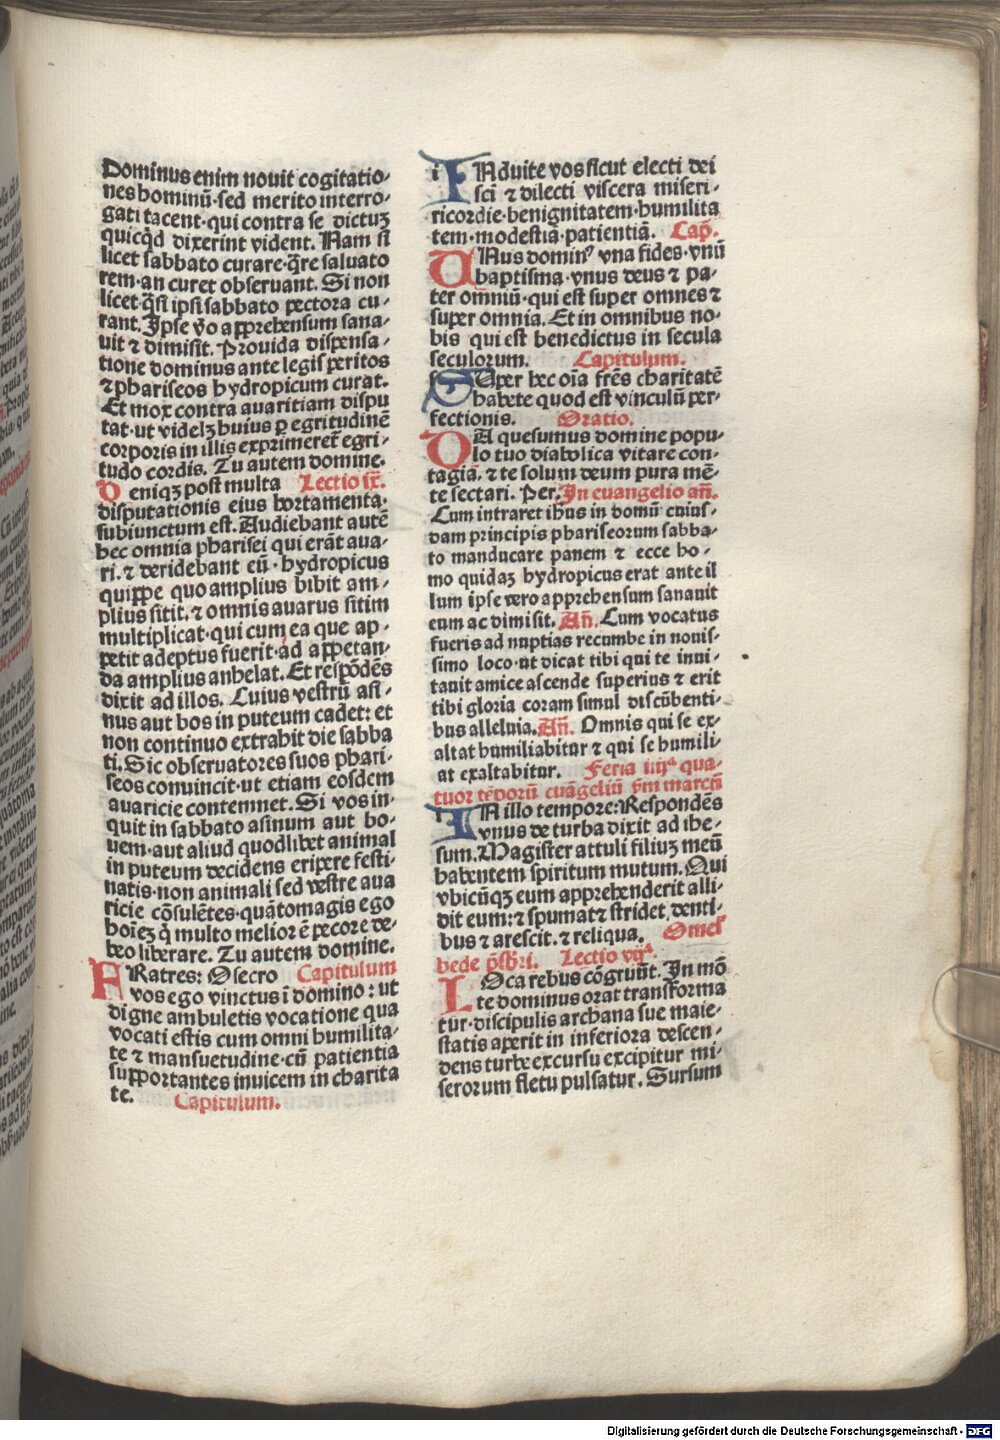 Dominus enim nouit cogitatio-
nes hominū·sed merito interro-
gati tacent·qui contra se dictuꝫ
quicq̇d dixerint vident. Nam si
licet sabbato curare·q̄re saluato
rem·an curet obseruant. Si non
licet·q̄si ipsi sabbato pectora cu-
rant. Ipse v̄o apprehensum sana-
uit ⁊ dimisit. Prouida dispensa-
tione dominus ante legis peritos
⁊ phariseos hydropicum curat.
Et mox contra auaritiam dispu
tat·ut videlꝫ huius ꝑ egritudinē
corporis in illis exprimeret̄ egri-
tudo cordis. Tu autem domine.
D eniqꝫ post multa Lectio ix̄.
disputationis eius hortamenta·
subiunctum est. Audiebant autē
hec omnia pharisei qui erāt aua-
ri·⁊ deridebant eū·hydropicus
quippe quo amplius bibit am-
plius sitit·⁊ omnis auarus sitim
multiplicat·qui cum ea que ap-
petit adeptus fuerit·ad appetan-
da amplius anhelat. Et respōdēs
dixit ad illos. Cuius vestrū asi-
nus aut bos in puteum cadet: et
non continuo extrahit die sabba
ti. Sic obseruatores suos phari-
seos conuincit·ut etiam eosdem
auaricie contemnet. Si vos in-
quit in sabbato asinum aut bo-
uem·aut aliud quodlibet animal
in puteum decidens eripere festi-
natis·non animali sed vestre aua
ricie cōsulētes·quātomagis ego
hoīeꝫ q̇ multo melior ē pecore de-
beo liberare. Tu autem domine.
FRatres: Osecro Capitulum
vos ego vinctus ī domino: ut
digne ambuletis vocatione qua
vocati estis cum omni humilita-
te ⁊ mansuetudine·cū patientia
supportantes inuicem in charita
te. Capitulum.
INduite vos sicut electi dei
sc̄i ⁊ dilecti viscera miseri-
ricordie·benignitatem·humilita
tem·modestiā·patientiā. Cap̄.
UNus domin⁹ vna fides·vnū
baptisma·vnus deus ⁊ pa-
ter omniū·qui est super omnes ⁊
super omnia. Et in omnibus no-
bis qui est benedictus in secula
seculorum. Capitulum.
SUper hec oīa fr̄es charitatē
habete quod est vinculū per-
fectionis. Oratio.
DA quesumus domine popu-
lo tuo diabolica vitare con-
tagia·⁊ te solum deum pura mē-
te sectari. Per. In euangelio an̄.
Cum intraret ihus in domū cuius-
dam principis phariseorum sabba-
to manducare panem ⁊ ecce ho-
mo quidaꝫ hydropicus erat ante il
lum ipse vero apprehensum sanauit
eum ac dimisit. An̄. Cum vocatus
fueris ad nuptias recumbe in nouis-
simo loco·ut dicat tibi qui te inui-
tauit amice ascende superius ⁊ erit
tibi gloria coram simul discūbenti-
bus alleluia. An̄. Omnis qui se ex-
altat humiliabitur ⁊ qui se humili-
at exaltabitur. Feria iiijᵃ qua-
tuor tēporū euāgeliū ẜm marcū
IN illo tempore: Respondēs
vnus de turba dixit ad ihe-
sum. Magister attuli filiuꝫ meū
habentem spiritum mutum. Qui
vbicūqꝫ eum apprehenderit alli-
dit eum: ⁊ spumat ⁊ stridet denti-
bus ⁊ arescit. ⁊ reliqua. Omel̕
bede p̄sb̄ri. Lectio vijᵃ.
LOca rebus cōgruūt. In mō
te dominus orat transforma
tur·discipulis archana sue maie-
statis aperit in inferiora descen-
dens turbe excursu excipitur mi-
serorum fletu pulsatur. Sursum
Digitalisierung gefördert durch die Deutsche Forschungsgemeinschaft - DFG